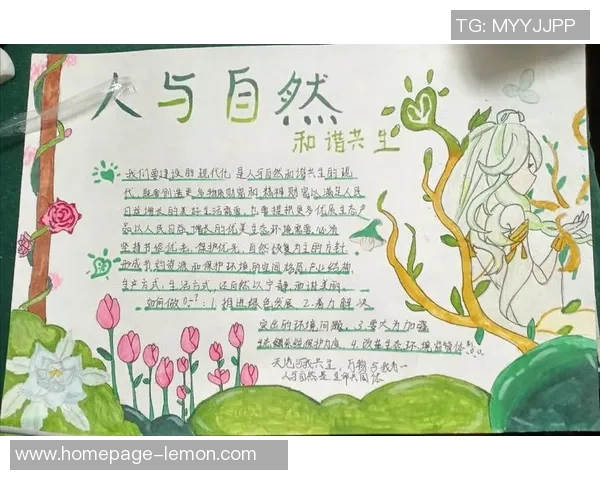 TG: MYYJJPP
人与自然
和谐共生
我们要建设的现代化是人与自然和谐共生的现
代,既要创造更多物质财富和精神财富以满足人民
日益增长的美好生活需要,也要提供更多优质生态产
品以人民日益增长的优美生态环境需要,必须
坚持节约优先、保护优先、自然恢复为主的方针,
形成节约资源和保护环境的空间格局、产业结构、
生产方式、生活方式,还自然以宁静、和谐、美丽。
如何做 1.推进绿色发展 2.着力解决
突出的环境问题、3.要大为加强
生态系统保护力度 4.改革生态环境监管体
天地与我共生,万物与我为一
人与自然是生命共同体
www.homepage-lemon.com/